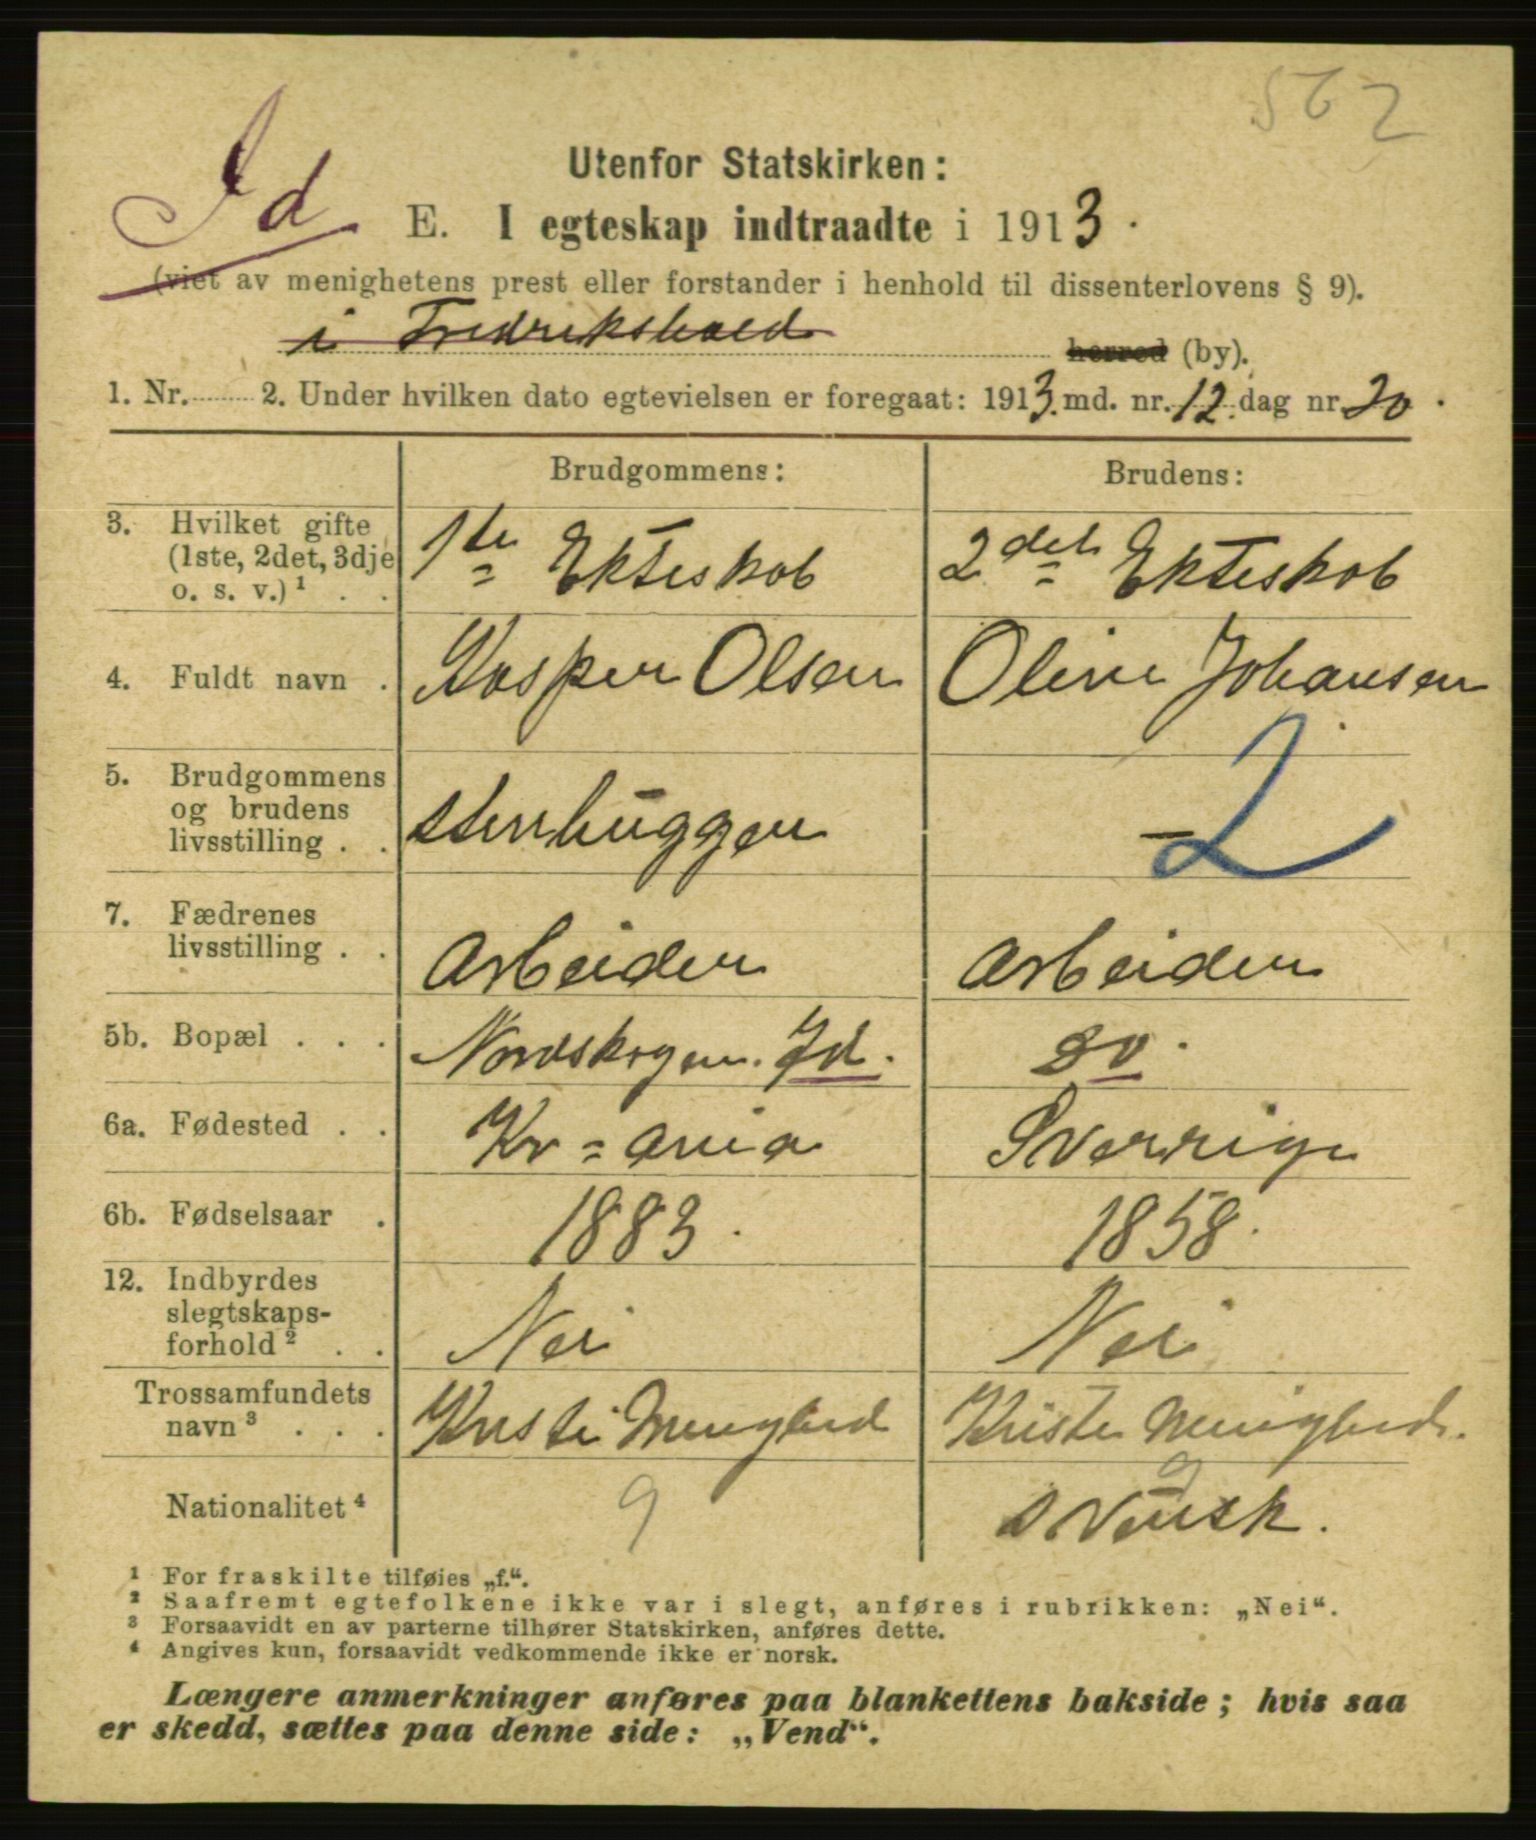 562
Utenfor Statskirken:
Id
E. I egteskap indtraadte i 1913.
(viet av menighetens prest eller forstander i henhold til dissenterlovens § 9).
i Fredrikshald herred (by).
1. Nr. 2. Under hvilken dato egtevielsen er foregaat: 1913. md. nr. 12. dag nr. 20.
Brudgommens: Brudens:
3. Hvilket gifte (1ste, 2det, 3dje o. s. v.)¹ . . 1ste Ekteskab 2det Ekteskab
4. Fuldt navn . Kasper Olsen Oline Johansen
5. Brudgommens og brudens livsstilling . . stenhugger – 2
7. Fædrenes livsstilling . . Arbeider Arbeider
5b. Bopæl . . . Nordskogen. Id. do.
6a. Fødested . . Kr=ania Sverrige
6b. Fødselsaar . 1883. 1858.
12. Indbyrdes slegtskaps-forhold² . . Nei Nei
Trossamfundets navn³ . . . Kristi Menighed Kristi Menighed.
Nationalitet⁴ 9 9 svensk.
¹ For fraskilte tilføies „f.“.
² Saafremt egtefolkene ikke var i slegt, anføres i rubrikken: „Nei“.
³ Forsaavidt en av parterne tilhører Statskirken, anføres dette.
⁴ Angives kun, forsaavidt vedkommende ikke er norsk.
Længere anmerkninger anføres paa blankettens bakside; hvis saa
er skedd, sættes paa denne side: „Vend“.